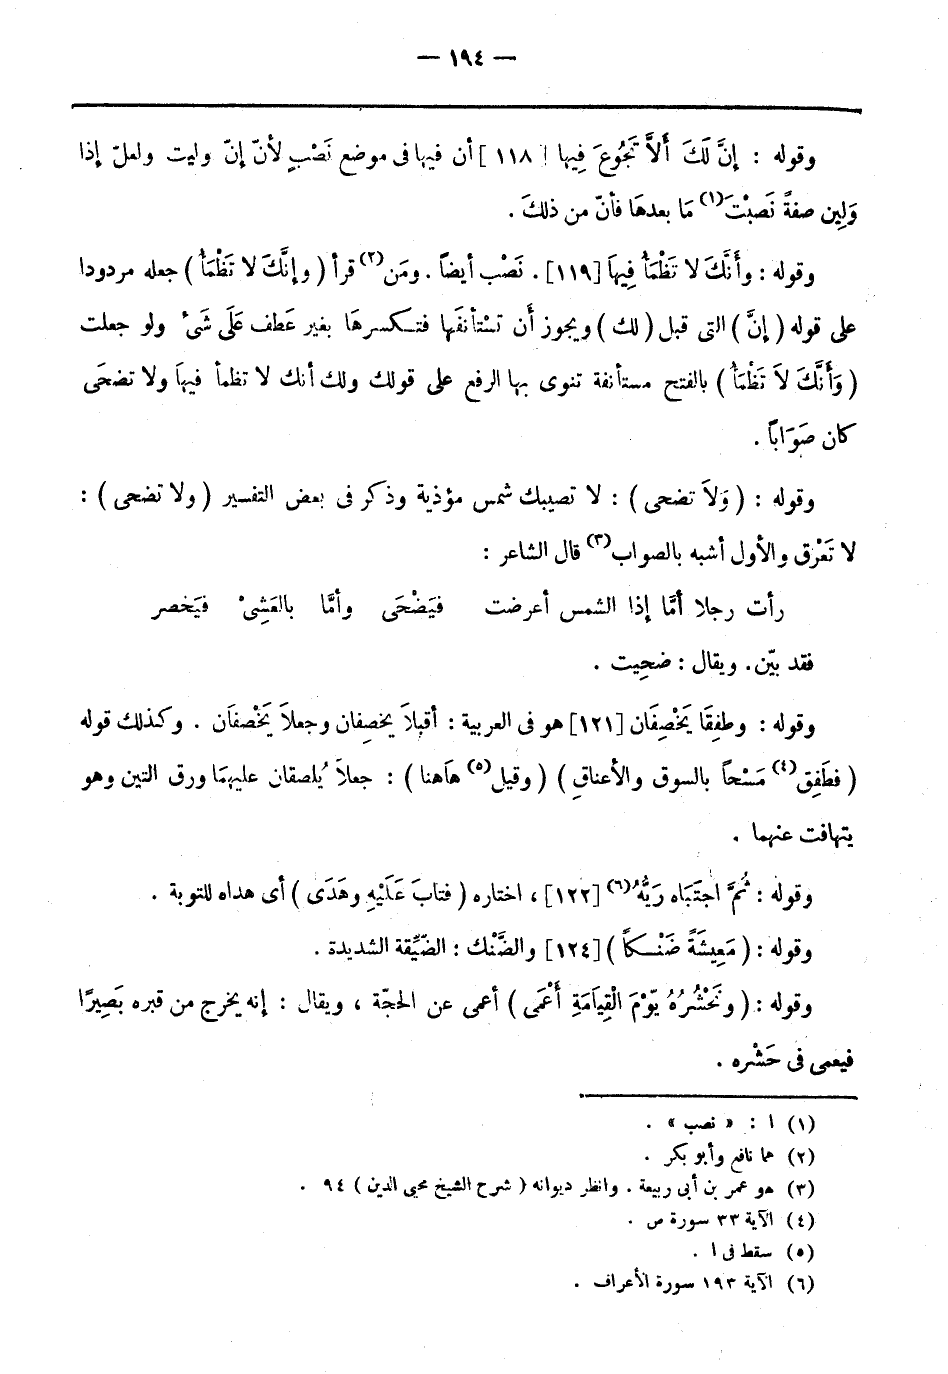 — ١٩٤ —
وقوله : إنَّ لَكَ أَلاَّ تَجُوعَ فِيها [ ١١٨ ] أن فيها فى موضع نَصْبٍ لأنّ إنّ وليت ولعلّ إذا
وَلِين صفةً نَصبْتَ(١) مَا بعدهَا فأنّ من ذلكَ .
وقوله : وأَنَّكَ لا تَظْمَأُ فِيهَا [١١٩] . نَصْب أيضاً . ومَن(٢) قرأ ( وإنَّكَ لا تَظْمَأُ ) جعله مردودا
على قوله ( إنَّ ) التى قبل ( لك ) ويجوز أَن تسْتأنفَها فتكسرهَا بغير عَطف عَلَى شَىْ ولو جعلت
( وَأَنَّكَ لاَ تَظْمَأُ ) بالفتح مستأنفة تنوى بها الرفع على قولك ولك أنك لا تظمأ فيهَا ولا تضحَى
كان صَوَاباً .
وقوله : ( وَلاَ تضحى ) : لا تصيبك شمس مؤذية وذكر فى بعض التفسير ( ولا تضحى ) :
لا تَعْرَق والأول أشبه بالصواب(٣) قال الشاعر :
رأت رجلا أمَّا إذا الشمس أعرضت فيَضْحَى وأمَّا بالعَشِىْ فيَخصر
فقد بيّن . ويقال : ضحِيت .
وقوله : وطفِقَا يَخْصِفَان [١٢١] هو فى العربية : أقبلاَ يخصِفان وجعلاَ يَخْصفاَن . وكذلك قوله
( فطَفِق(٤) مَسْحاً بالسوق والأعناقِ ) ( وقيل(٥) هاَهنا ) : جعلاَ يُلصقان عليهمَا ورق التين وهو
يتهافت عنهما .
وقوله : ثُمَّ اجتَبَاه رَبُّهُ(٦) [١٢٢] ، اختاره ( فتابَ عَلَيْهِ وهَدَى ) أى هداه للتوبة .
وقوله : ( مَعِيشَةً ضَنْكاً ) [١٢٤] والضَّنْك : الضّيِّقة الشديدة .
وقوله : ( ونَحْشُرُهُ يَوْمَ الْقِيَامَةِ أَعْمَى ) أعمى عن الحجّة ، ويقال : إنه يخرج من قبره بَصِيرًا
فيعمى فى حَشْره .
(١) ا : « نصب » .
(٢) هما نافع وأبو بكر .
(٣) هو عمر بن أبى ربيعة . وانظر ديوانه ( شرح الشيخ محيى الدين ) ٩٤ .
(٤) الآية ٣٣ سورة ص .
(٥) سقط فى ا .
(٦) الآية ١٩٣ سورة الأعراف .